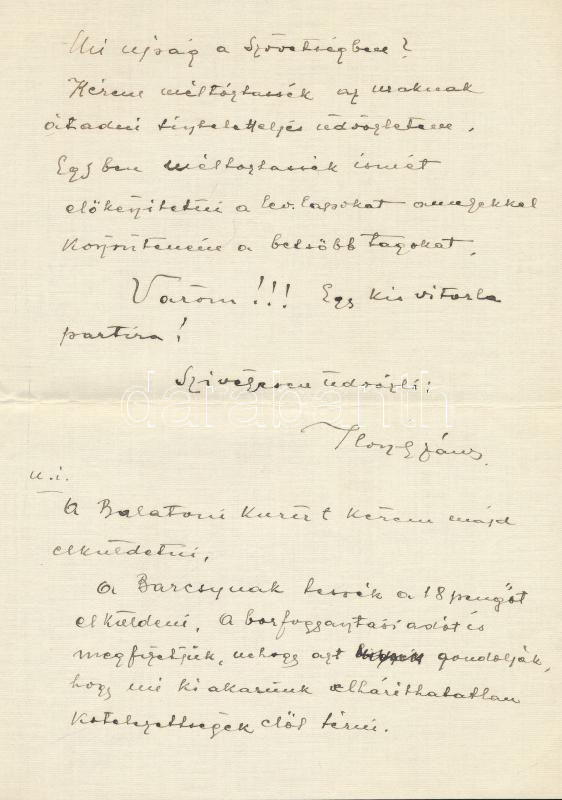 Mi ujság a Szövetségben?
Kérem méltóztassék az uraknak
átadni tiszteletteljes üdvözletem.
Egyben méltóztassék ismét
előkészitetni a lev. lapokat amyekkel
a belsőbb tagokat.
Várom!!! Egy kis vitorla
partira!
Szivélyesen üdvözli:
darabanth
János.
u.i.
A Balatoni Kurírt kérem majd
elküldetni,
a Barcsynak tessék a 18 pengőt
elküldeni. A borfogyaztási adót is
megfizetjük, nehogy azt gondolják,
hogy mi ki akarunk elháríthatatlan
kötelezettségek elől térni.